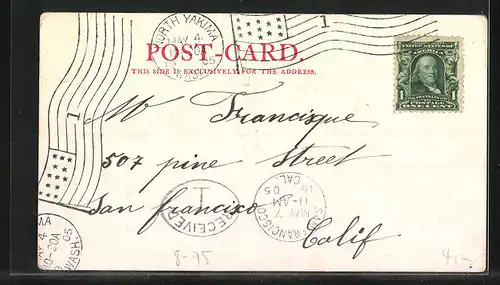 NORTH YAKIMA
MAY 4
05
WASH.
1
POST-CARD.
THIS SIDE IS EXCLUSIVELY FOR THE ADDRESS.
UNITED STATES OF AMERICA
FRANKLIN
POSTAGE
1 ONE CENT 1
1
Mr Francisque
507 pine Street
San francisco
Calif
RECEIVED
1
SAN FRANCISCO, CAL.
MAY 7
11-AM
1905
MA
MAY 4
10-20A
05
WASH.
8-75
4,-